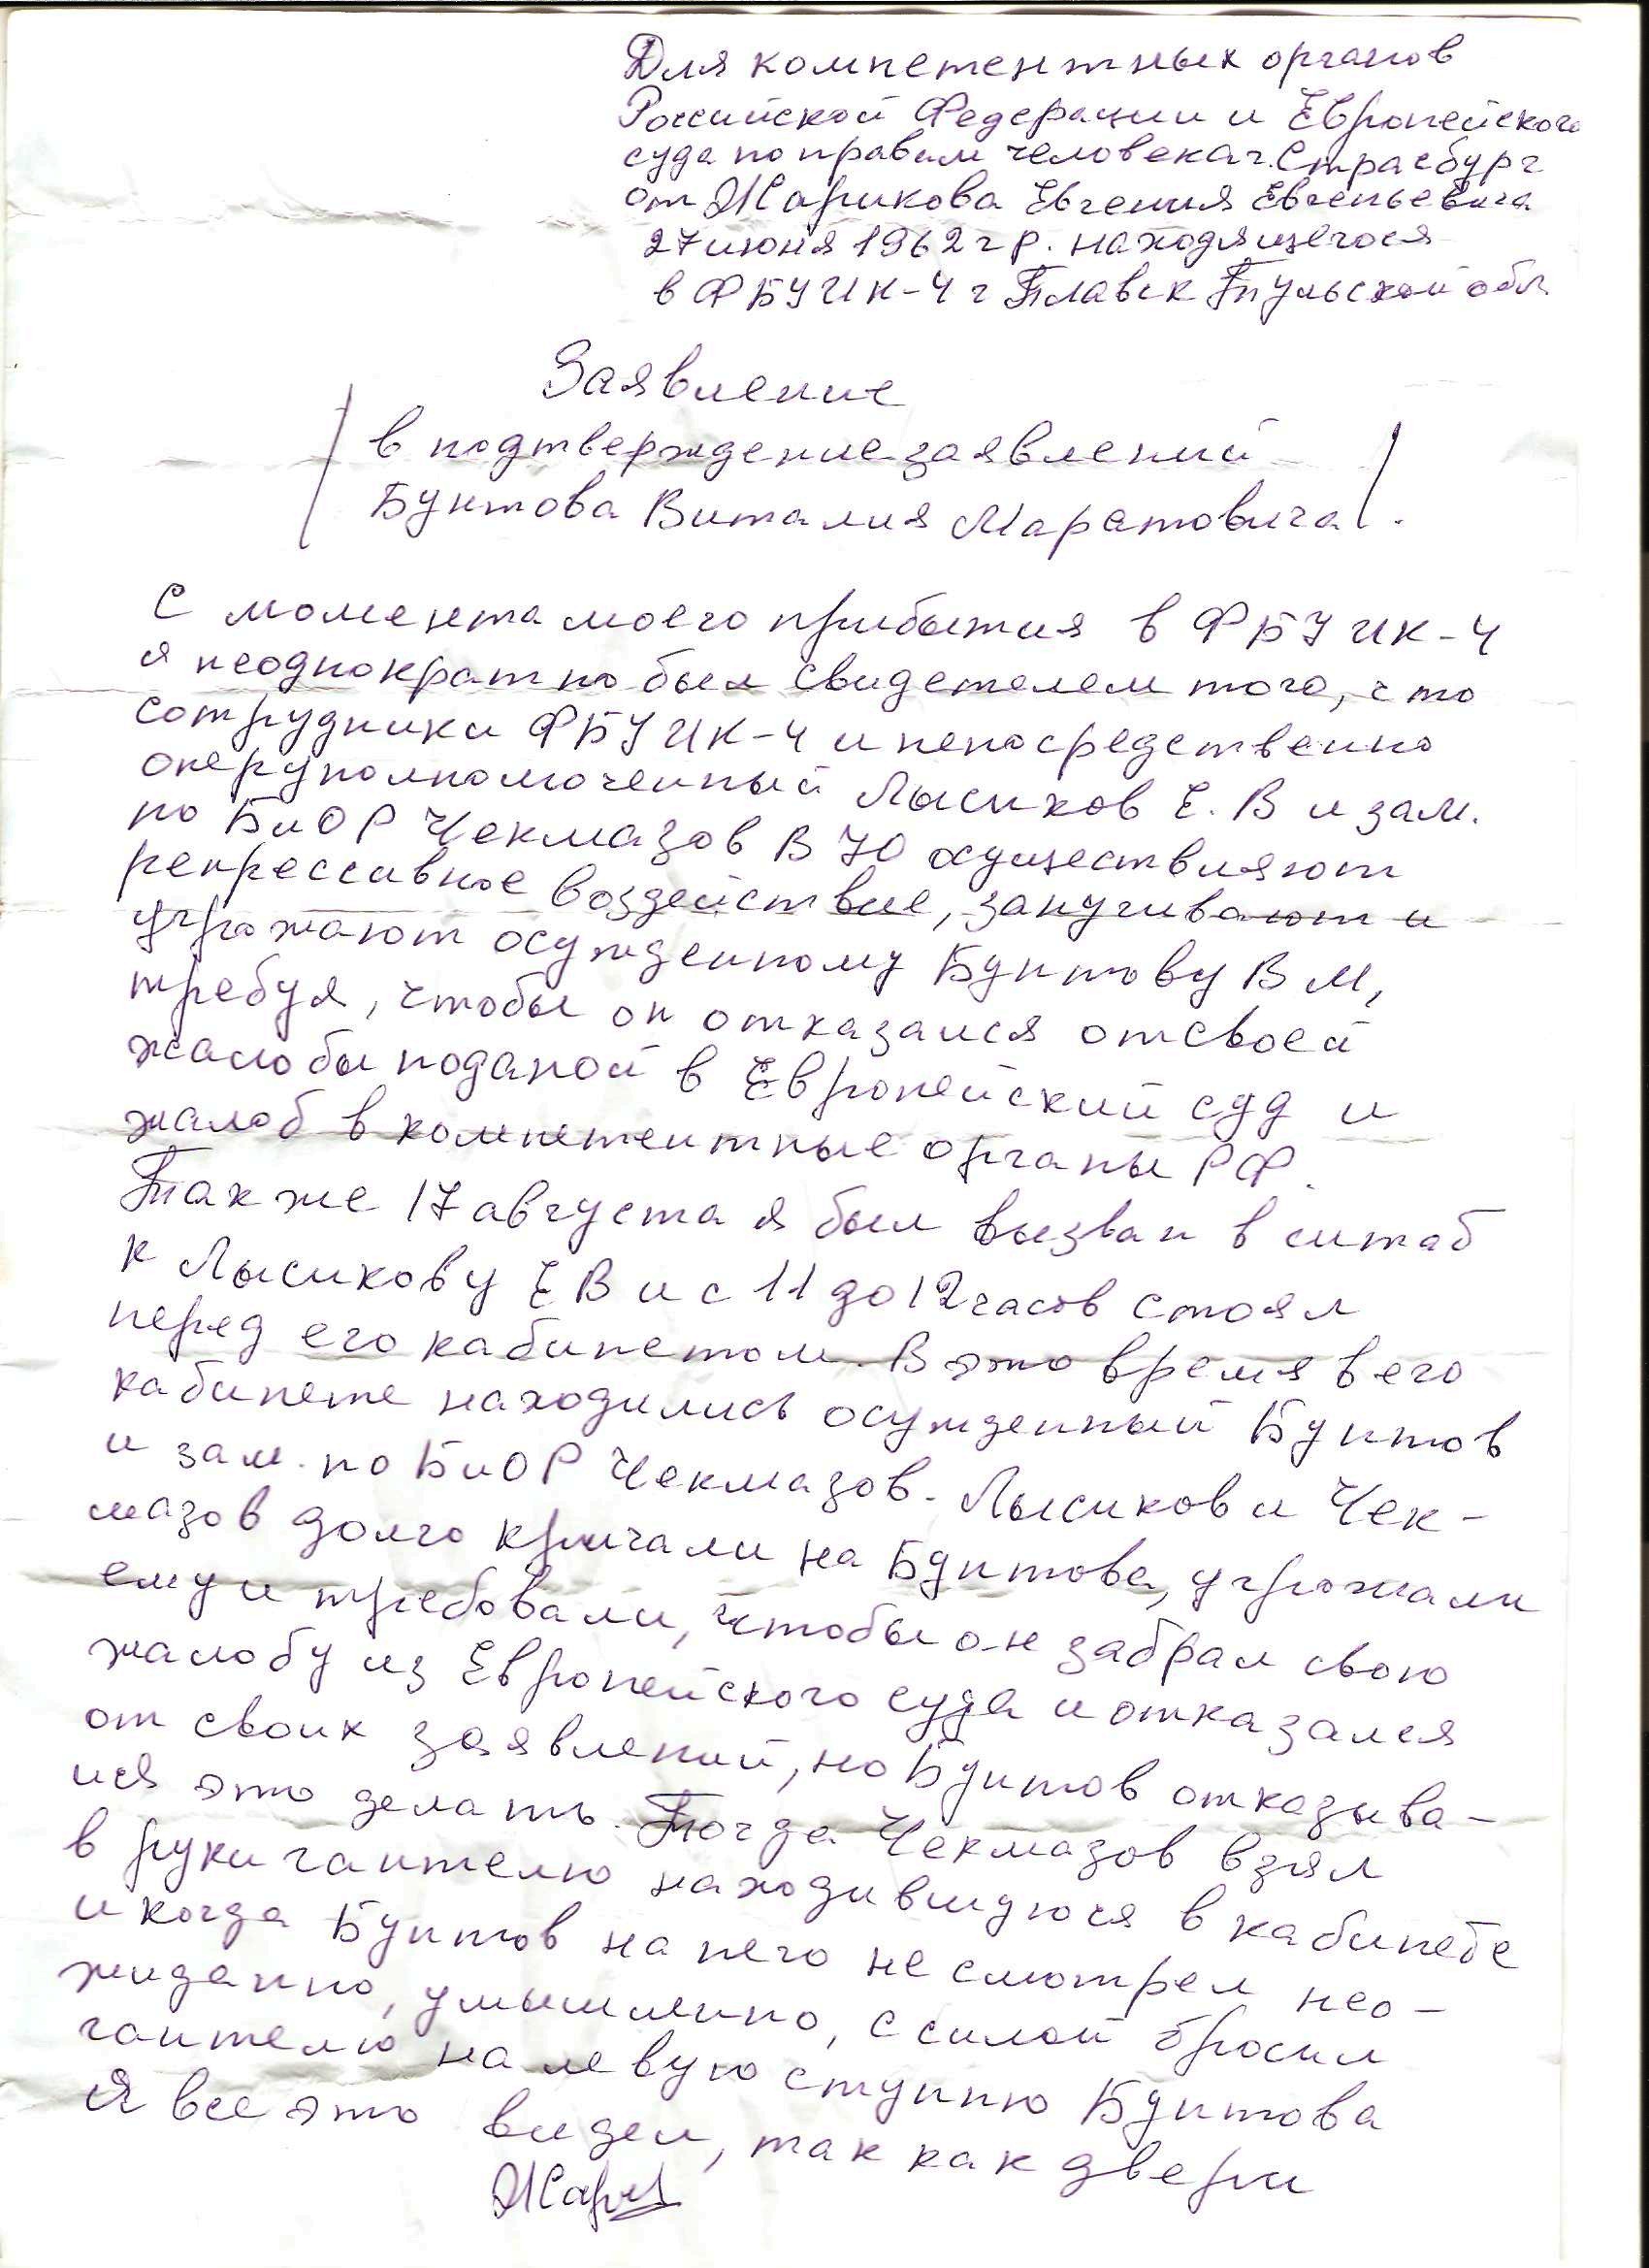 Для компетентных органов
Российской Федерации и Европейского
суда по правам человека г. Страсбург
от Жарикова Евгения Евгеньевича
27 июня 1962 г р. находящегося
в ФБУ ИК-4 г Плавск Тульской обл.
Заявление
в подтверждение заявлений
Бунтова Виталия Маратовича.
С момента моего прибытия в ФБУ ИК-4
я неоднократно был свидетелем того, что
сотрудники ФБУ ИК-4 и непосредственно
оперуполномоченный Лысиков Е. В и зам.
по БиОР Чекмазов В Ю осуществляют
репрессивное воздействие, запугивают и
угрожают осужденному Бунтову В М,
требуя, чтобы он отказался от своей
жалобы поданой в Европейский суд и
жалоб в компетентные органы РФ.
Так же 17 августа я был вызван в штаб
к Лысикову Е В и с 11 до 12 часов стоял
перед его кабинетом. В это время в его
кабинете находились осужденный Бунтов
и зам. по БиОР Чекмазов. Лысиков и Чек-
мазов долго кричали на Бунтова, угрожали
ему и требовали, чтобы он забрал свою
жалобу из Европейского суда и отказался
от своих заявлений, но Бунтов отказыва-
лся это делать. Тогда Чекмазов взял
в руки гантелю находившуюся в кабинете
и когда Бунтов на него не смотрел нео-
жиданно, умышленно, с силой бросил
гантелю на левую ступню Бунтова
Я все это видел, так как двери
Жари